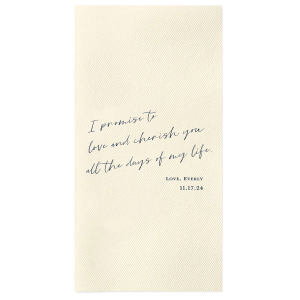 I promise to
love and cherish you
all the days of my life.
Love, Everly
11.17.24